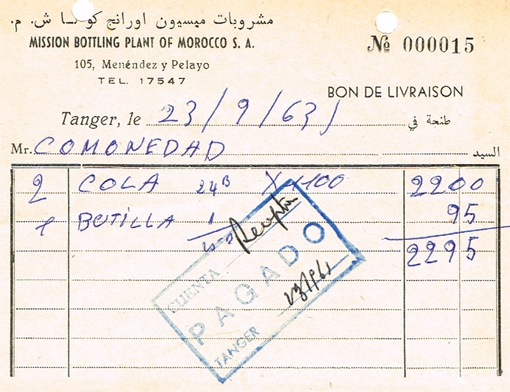 مشروبات ميسيون اورانج كو ش. م.
MISSION BOTTLING PLANT OF MOROCCO S. A.
Nº 000015
105, Menéndez y Pelayo
TEL. 17547
BON DE LIVRAISON
Tanger, le 23/9/63 طنجة في
Mr. COMONEDAD السيد
2 COLA 24B X 1100 2200
1 BOTILLA 95
2295
CUENTA
PAGADO
TANGER